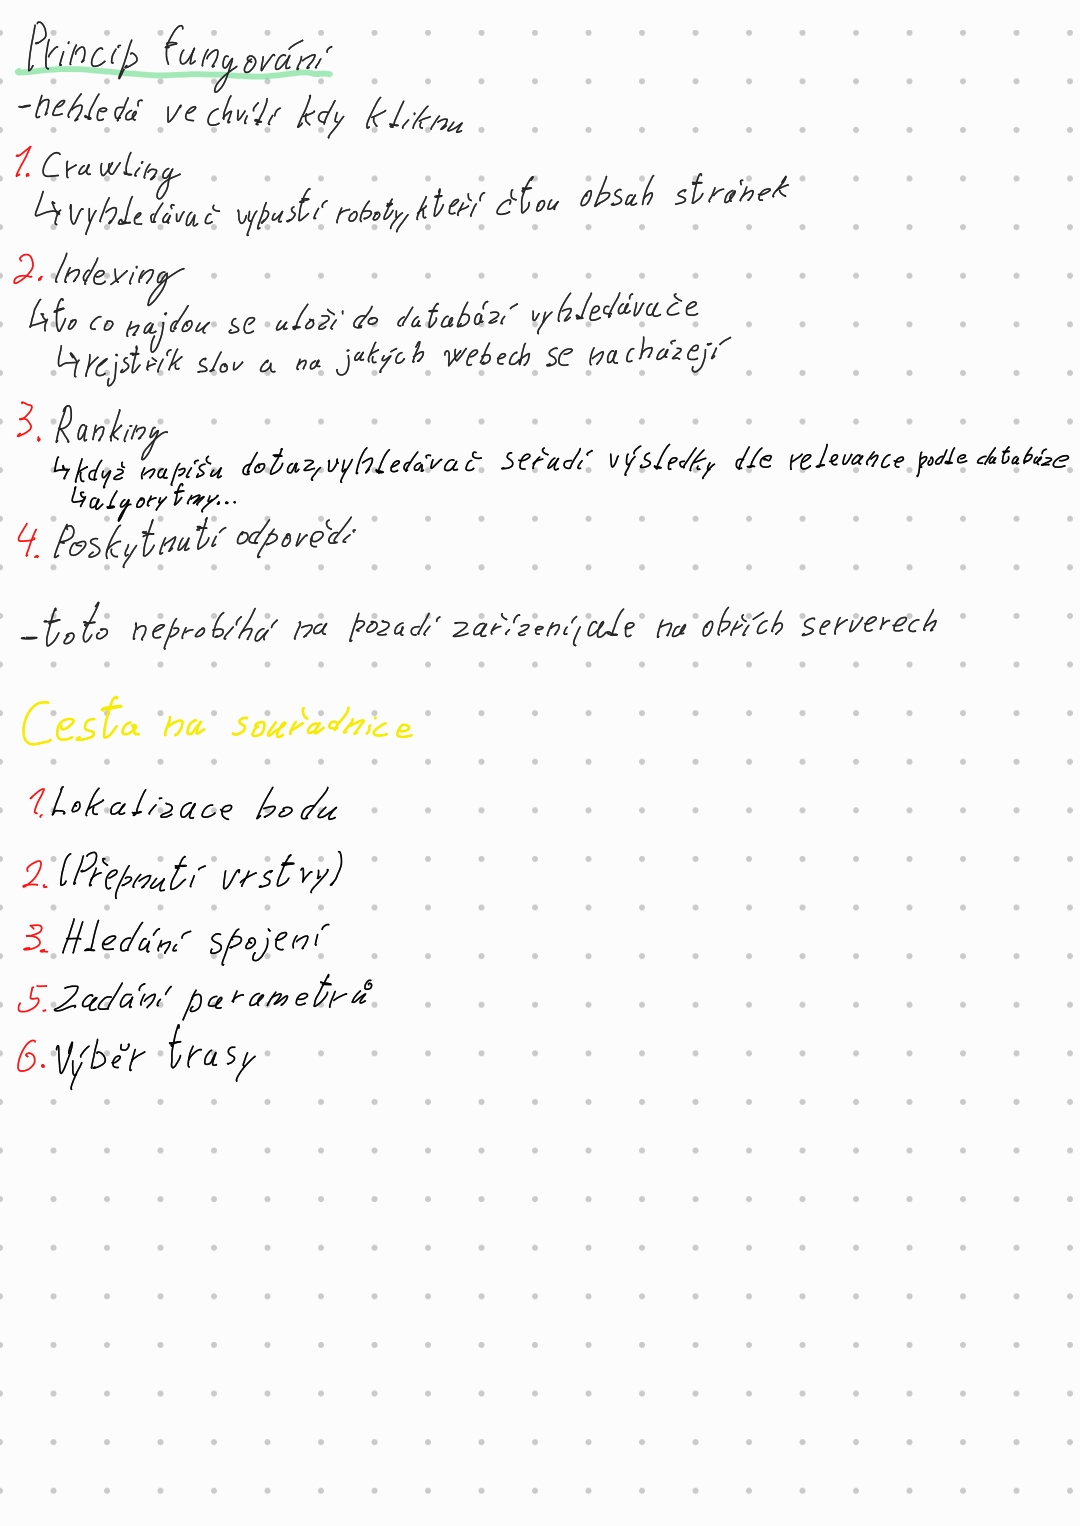 Princip fungování
-nehledá ve chvíli kdy kliknu
1. Crawling
↳vyhledávač vypustí roboty, kteří čtou obsah stránek
2. Indexing
↳to co najdou se uloží do databází vyhledávače
↳rejstřík slov a na jakých webech se nacházejí
3. Ranking
↳když napíšu dotaz, vyhledávač seřadí výsledky dle relevance podle databáze
↳algorytmy...
4. Poskytnutí odpovědi
-toto neprobíhá na pozadí zařízení, ale na obřích serverech
Cesta na souřadnice
1. Lokalizace bodu
2. (Přepnutí vrstvy)
3. Hledání spojení
5. Zadání parametrů
6. Výběr trasy